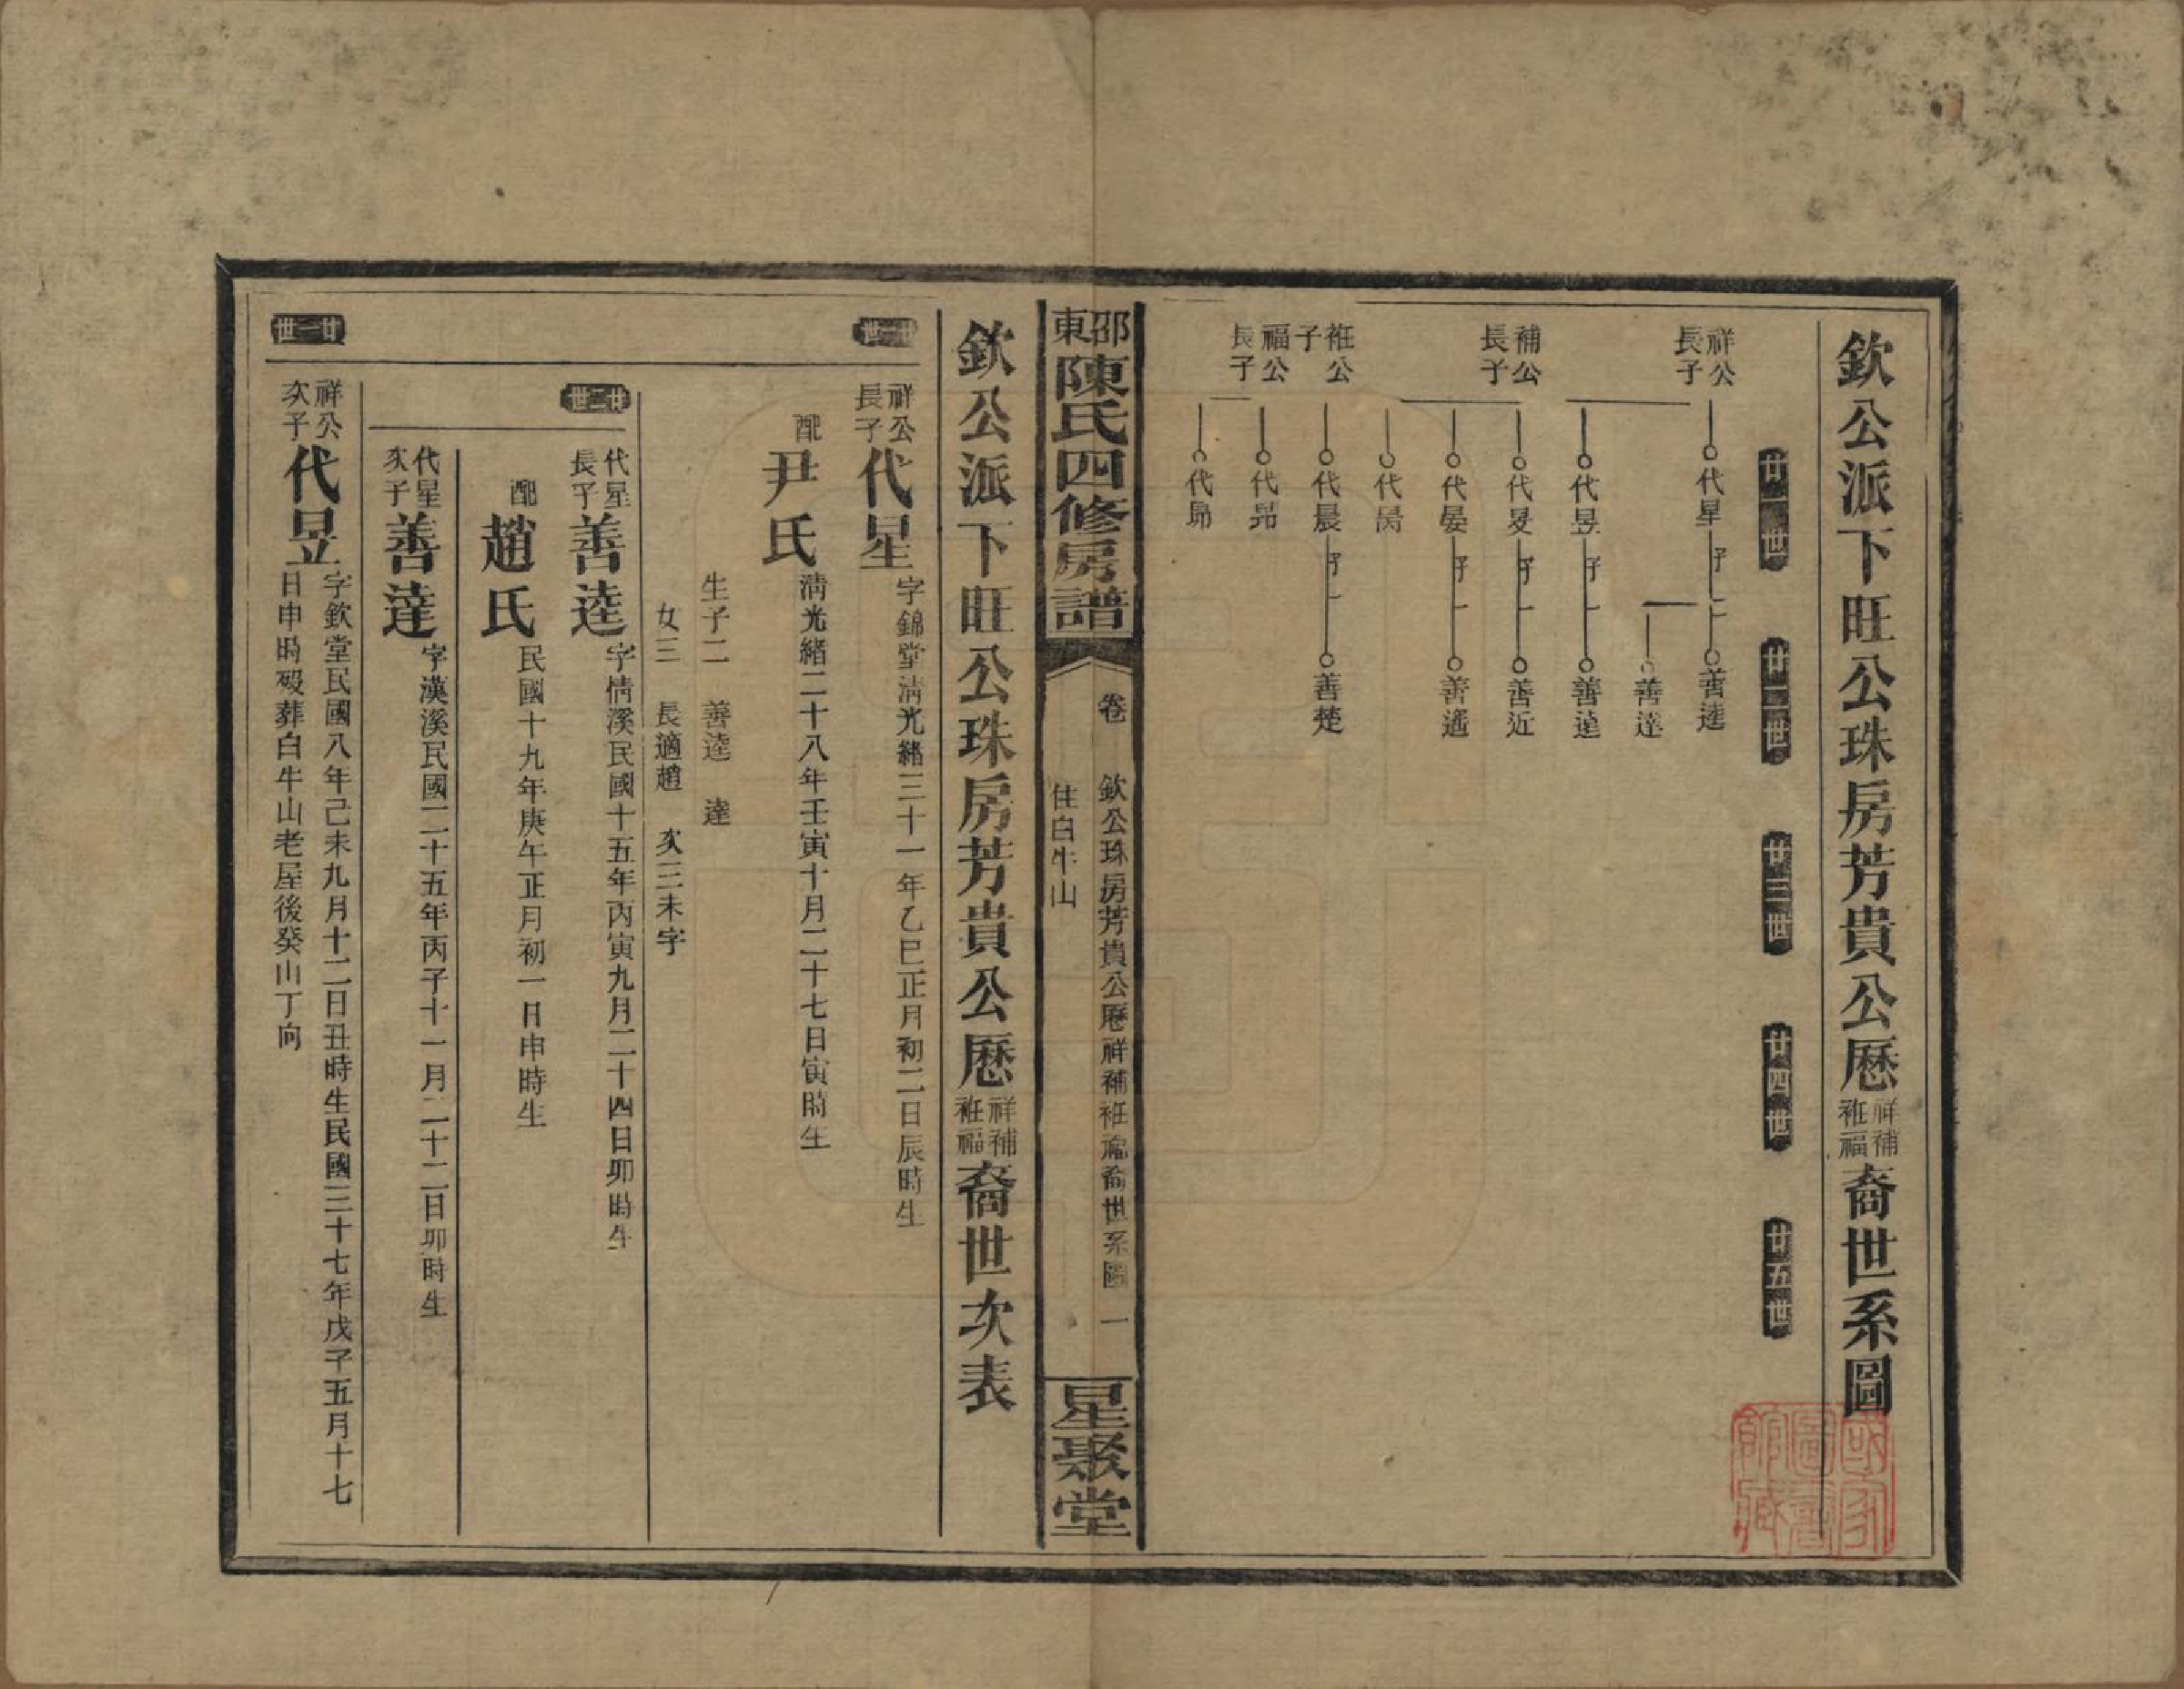 欽公派下旺公珠房芳貴公厯祥補袵福裔世系圖
廿一世　廿二世　廿三世　廿四世　廿五世
祥公長子　代星　子二　善逵
善達
代昱　子一　善達
補公長子　代旻　子一　善近
代晏　子一　善遙
代昺
袵公子　代晨　子一　善楚
福公長子　代昂
代昴
邵東陳氏四修房譜
卷　欽公珠房芳貴公厯祥補袵福裔世系圖　一
住白牛山
星聚堂
欽公派下旺公珠房芳貴公厯祥補袵福裔世次表
廿一世
祥公長子代星　字錦堂淸光緖三十一年乙巳正月初二日辰時生
配尹氏　淸光緖二十八年壬寅十月二十七日寅時生
生子二　善逵　達
女三　長適趙　次三未字
廿二世
代星長子善逵　字情溪民國十五年丙寅九月二十四日卯時生
配趙氏　民國十九年庚午正月初一日申時生
代星次子善達　字漢溪民國二十五年丙子十一月二十二日卯時生
廿一世
祥公次子代昱　字欽堂民國八年己未九月十二日丑時生民國三十七年戊子五月十七
日申時歿葬白牛山老屋後癸山丁向
國家圖書館藏